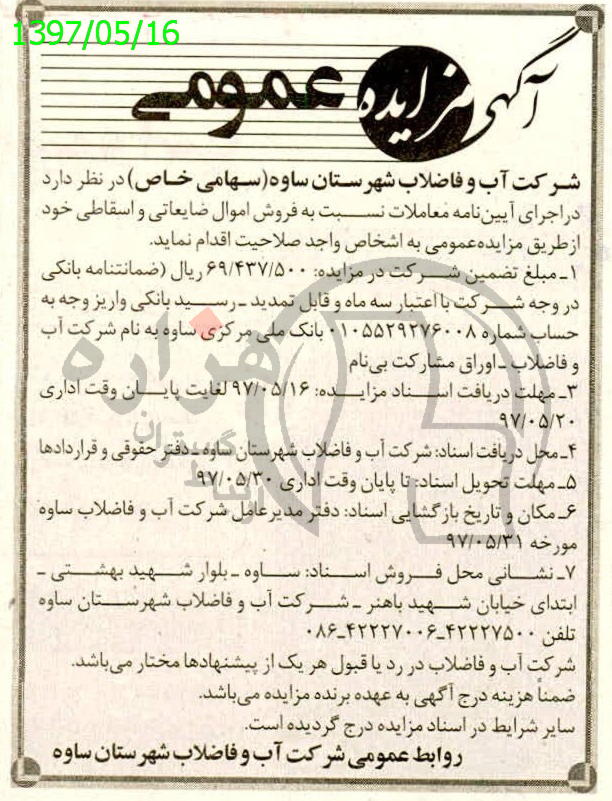 1397/05/16
آگهی مزایده عمومی
شرکت آب و فاضلاب شهرستان ساوه(سهامی خاص) در نظر دارد
دراجرای آیین‌نامه معاملات نسبت به فروش اموال ضایعاتی و اسقاطی خود
ازطریق مزایده‌عمومی به اشخاص واجد صلاحیت اقدام نماید.
۱ـ مبلغ تضمین شرکت در مزایده: ۶۹/۴۳۷/۵۰۰ ریال (ضمانتنامه بانکی
در وجه شرکت با اعتبار سه ماه و قابل تمدید ـ رسید بانکی واریز وجه به
حساب شماره ۰۱۰۵۵۲۹۲۷۶۰۰۸ بانک ملی مرکزی ساوه به نام شرکت آب
و فاضلاب ـ اوراق مشارکت بی‌نام
۳ـ مهلت دریافت اسناد مزایده: ۹۷/۰۵/۱۶ لغایت پایان وقت اداری
۹۷/۰۵/۲۰
۴ـ محل دریافت اسناد: شرکت آب و فاضلاب شهرستان ساوه ـ دفتر حقوقی و قراردادها
۵ـ مهلت تحویل اسناد: تا پایان وقت اداری ۹۷/۰۵/۳۰
۶ـ مکان و تاریخ بازگشایی اسناد: دفتر مدیرعامل شرکت آب و فاضلاب ساوه
مورخه ۹۷/۰۵/۳۱
۷ـ نشانی محل فروش اسناد: ساوه ـ بلوار شهید بهشتی ـ
ابتدای خیابان شهید باهنر ـ شرکت آب و فاضلاب شهرستان ساوه
تلفن ۴۲۲۲۷۵۰۰ـ۴۲۲۲۷۰۰۶ـ۰۸۶
شرکت آب و فاضلاب در رد یا قبول هر یک از پیشنهادها مختار می‌باشد.
ضمناً هزینه درج آگهی به عهده برنده مزایده می‌باشد.
سایر شرایط در اسناد مزایده درج گردیده است.
روابط عمومی شرکت آب و فاضلاب شهرستان ساوه
هزاره
گستران
ارتباط